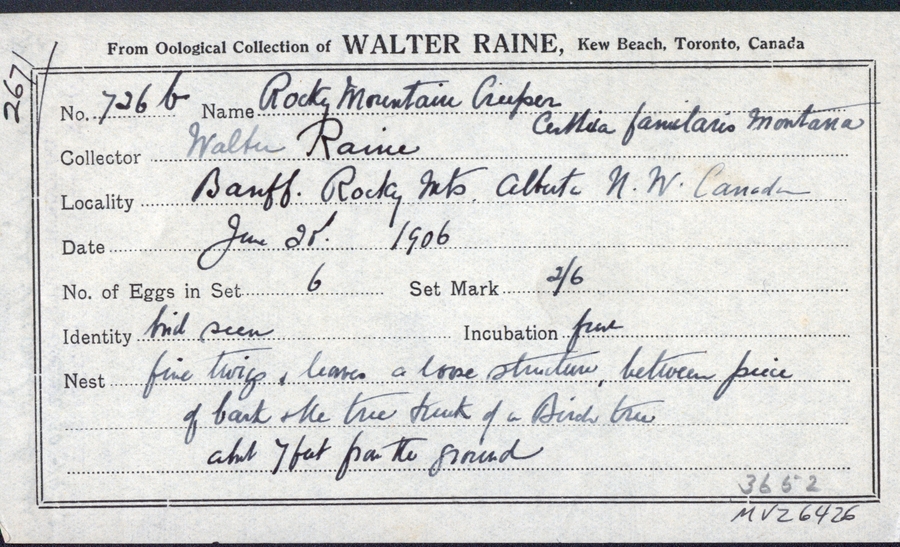 From Oological Collection of WALTER RAINE, Kew Beach, Toronto, Canada
2671
No. 726 b Name Rocky Mountain Creeper
Certhia familaris Montana
Collector Walter Raine
Locality Banff. Rocky Mts. Alberta N.W. Canada
Date June 1906
No. of Eggs in Set 6 Set Mark 2/6
Identity bird seen Incubation
Nest fine twigs, leaves a loose structure, between piece
of bark & the tree trunk of a Birch tree
abut 7 feet from the ground
3652
MVZ 6426